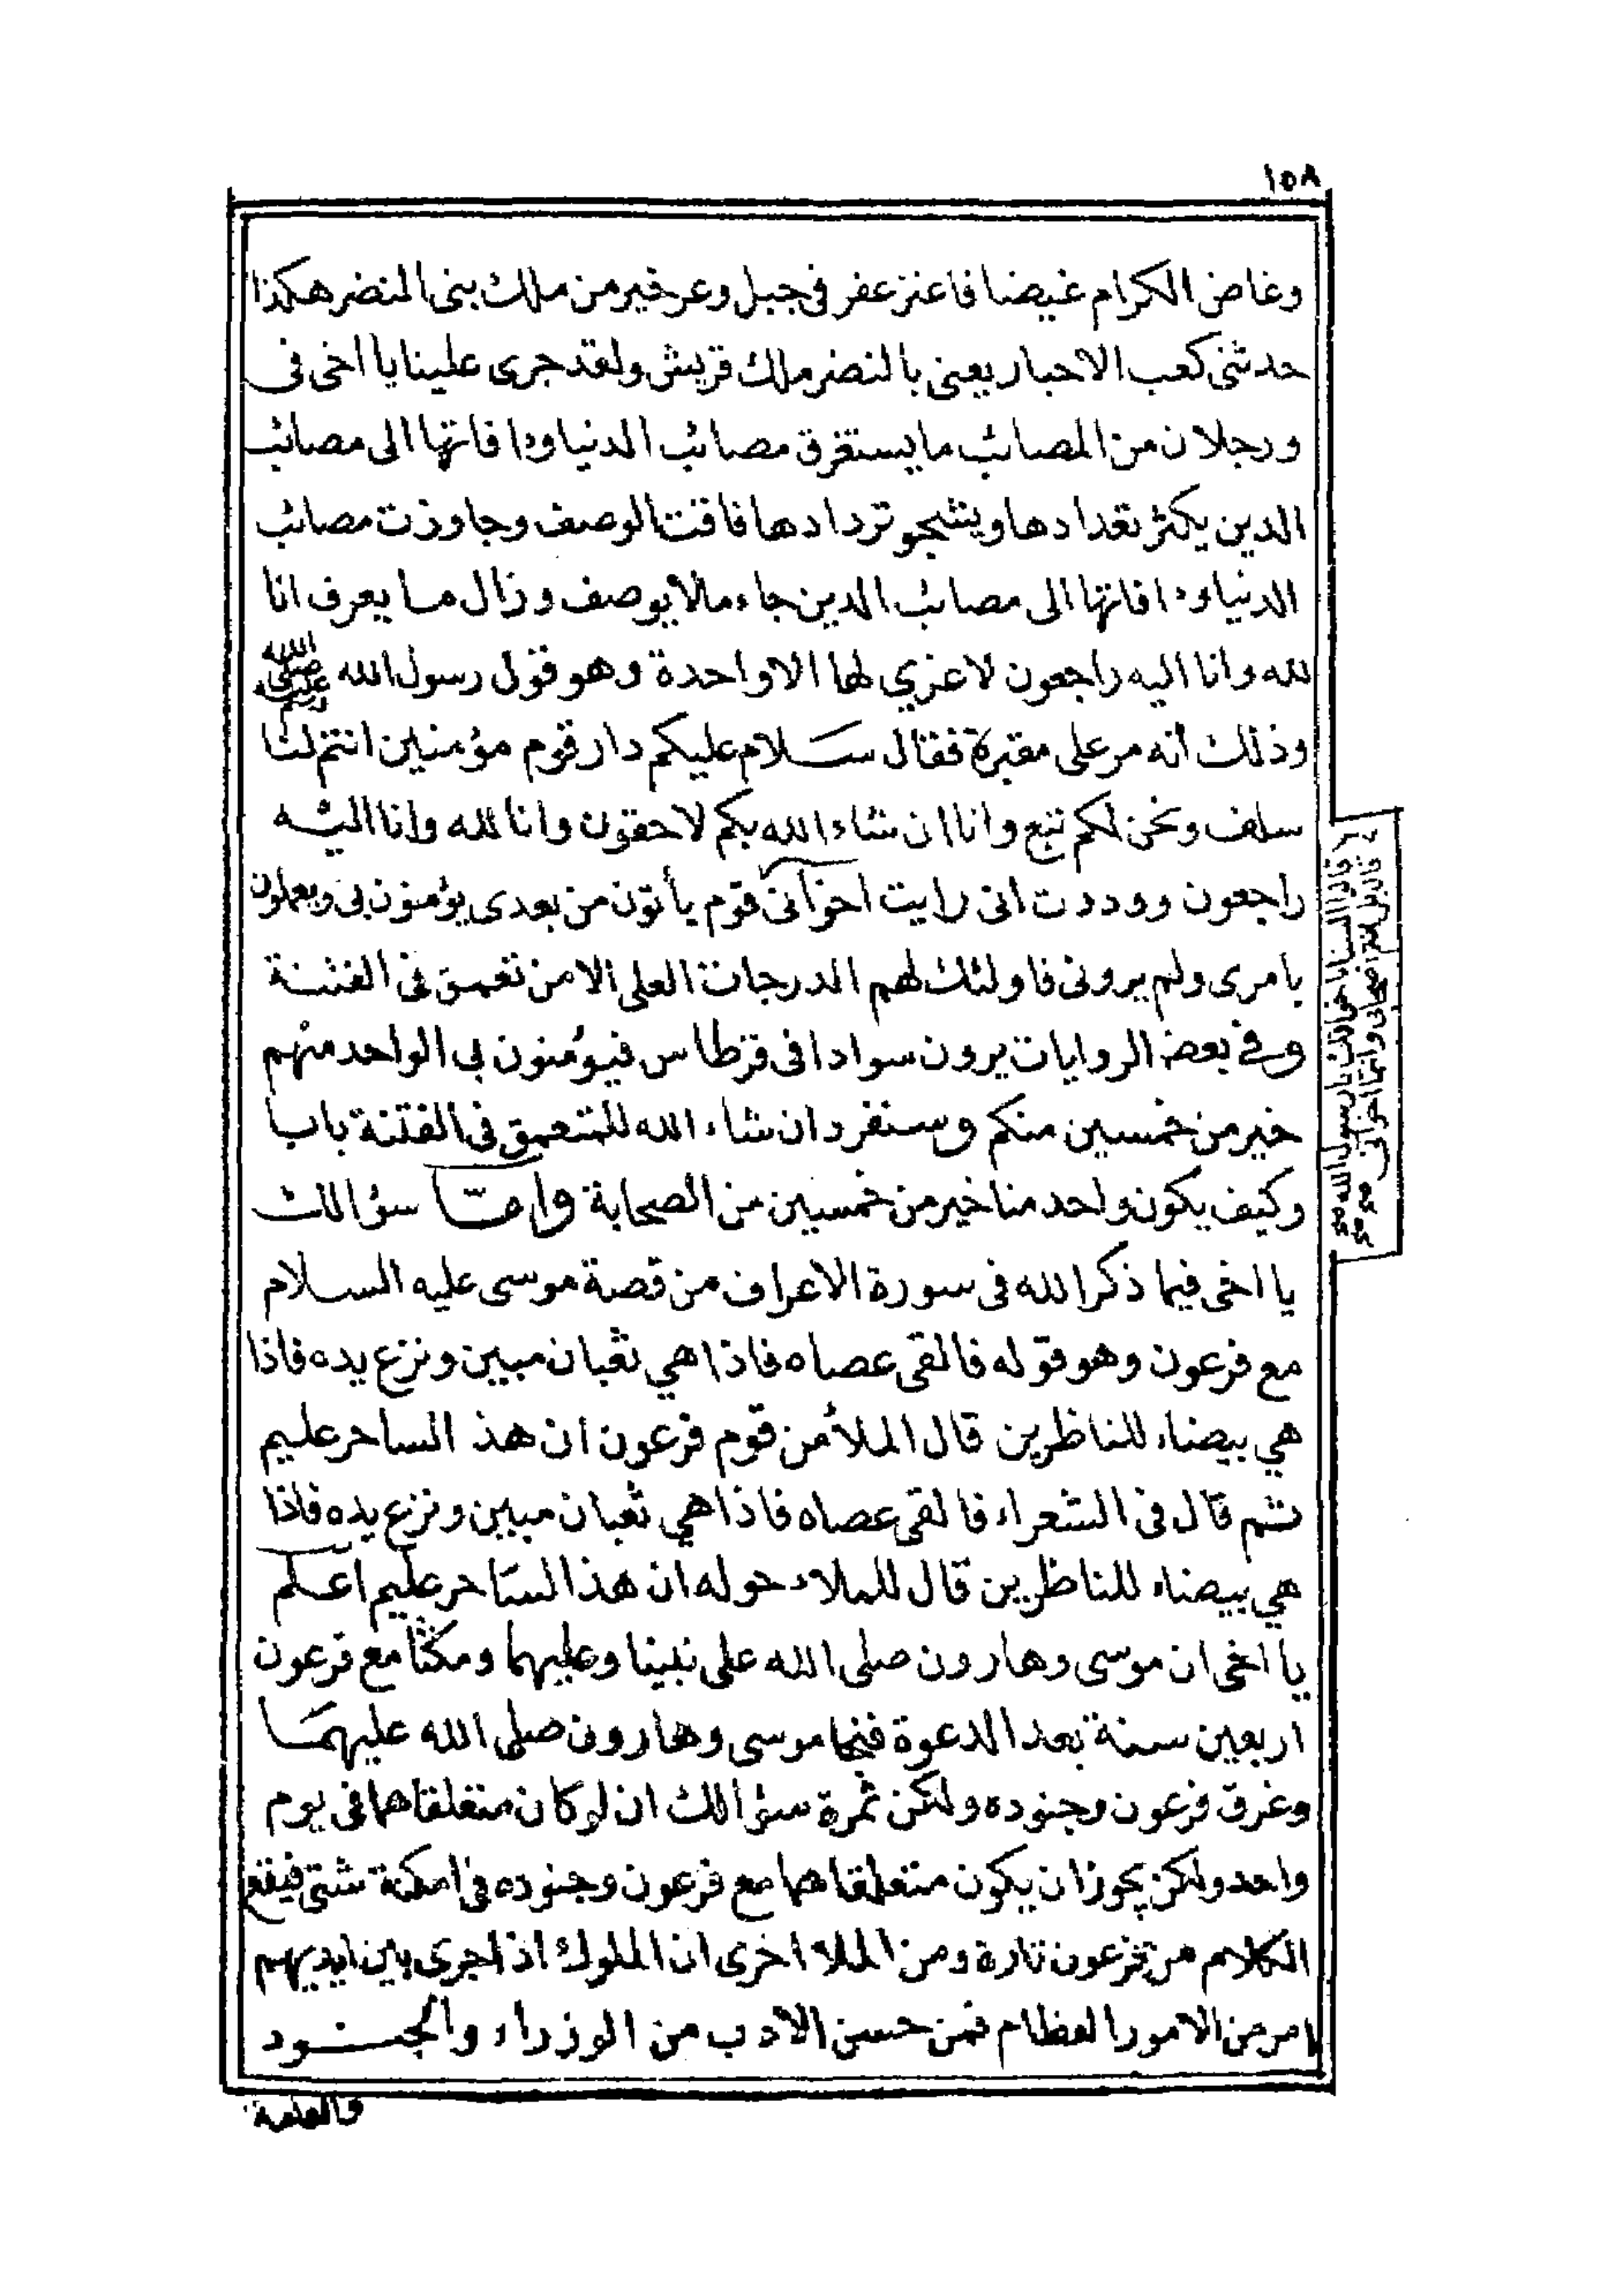 ١٥٨
وغاض الكرام غيضا فاعنز عفر في جبل وعر خير من ملك بنى النضر هكذا
حدثنى كعب الاحبار يعنى بالنضر ملك قريش ولقد جرى علينا يا اخى فى
ورجلان من المصائب ما يستغرق مصائب الدنيا وءافاتها الى مصائب
الدين يكثر تعدادها ويشجو تردادها فاقت الوصف وجاوزت مصائب
الدنيا وءافاتها الى مصائب الدين جاء مالا يوصف وزال ما يعرف انا
لله وانا اليه راجعون لا عزي لها الا واحدة وهو قول رسول الله صلى الله عليه وسلم
وذلك أنه مر على مقبرة فقال سلام عليكم دار قوم مؤمنين انتم لنا
سلف ونحن لكم تبع وانا ان شاء الله بكم لاحقون وانا لله وانا اليه
راجعون ووددت انى رايت اخوانى قوم يأتون من بعدى يؤمنون بى ويعملون
بامرى ولم يرونى فاولئك لهم الدرجات العلى الا من تعمق فى الفتنة
وفي بعض الروايات يرون سوادا فى قرطاس فيؤمنون بى الواحد منهم
خير من خمسين منكم وسنفرد ان شاء الله للمتعمق فى الفتنة بابا
وكيف يكون واحد منا خير من خمسين من الصحابة وامّا سؤالك
يا اخى فيما ذكر الله فى سورة الاعراف من قصة موسى عليه السلام
مع فرعون وهو قوله فالقى عصاه فاذا هي ثعبان مبين ونزع يده فاذا
هي بيضاء للناظرين قال الملأ من قوم فرعون ان هذ الساحر عليم
ثم قال فى الشعراء فالقى عصاه فاذا هي ثعبان مبين ونزع يده فاذا
هي بيضاء للناظرين قال للملاء حوله ان هذا السّاحر عليم اعلم
يا اخى ان موسى وهارون صلى الله على نبينا وعليهما ومكثا مع فرعون
اربعين سنة بعد الدعوة فنجا موسى وهارون صلى الله عليهما
وغرق فرعون وجنوده ولكن ثمرة سؤالك ان لو كان متعلقاهما فى يوم
واحد ولكن يجوز ان يكون متعلقاهما مع فرعون وجنوده فى امكنة شتى فيقع
الكلام من فرعون تارة ومن الملا اخرى ان الملوك اذا جرى بين ايديهم
امر من الامور العظام فمن حسن الادب من الوزراء والجنود
والعلمة
قالوا السنا اخوانك يا رسول الله
قال بل انتم اصحابى وانما اخوانى